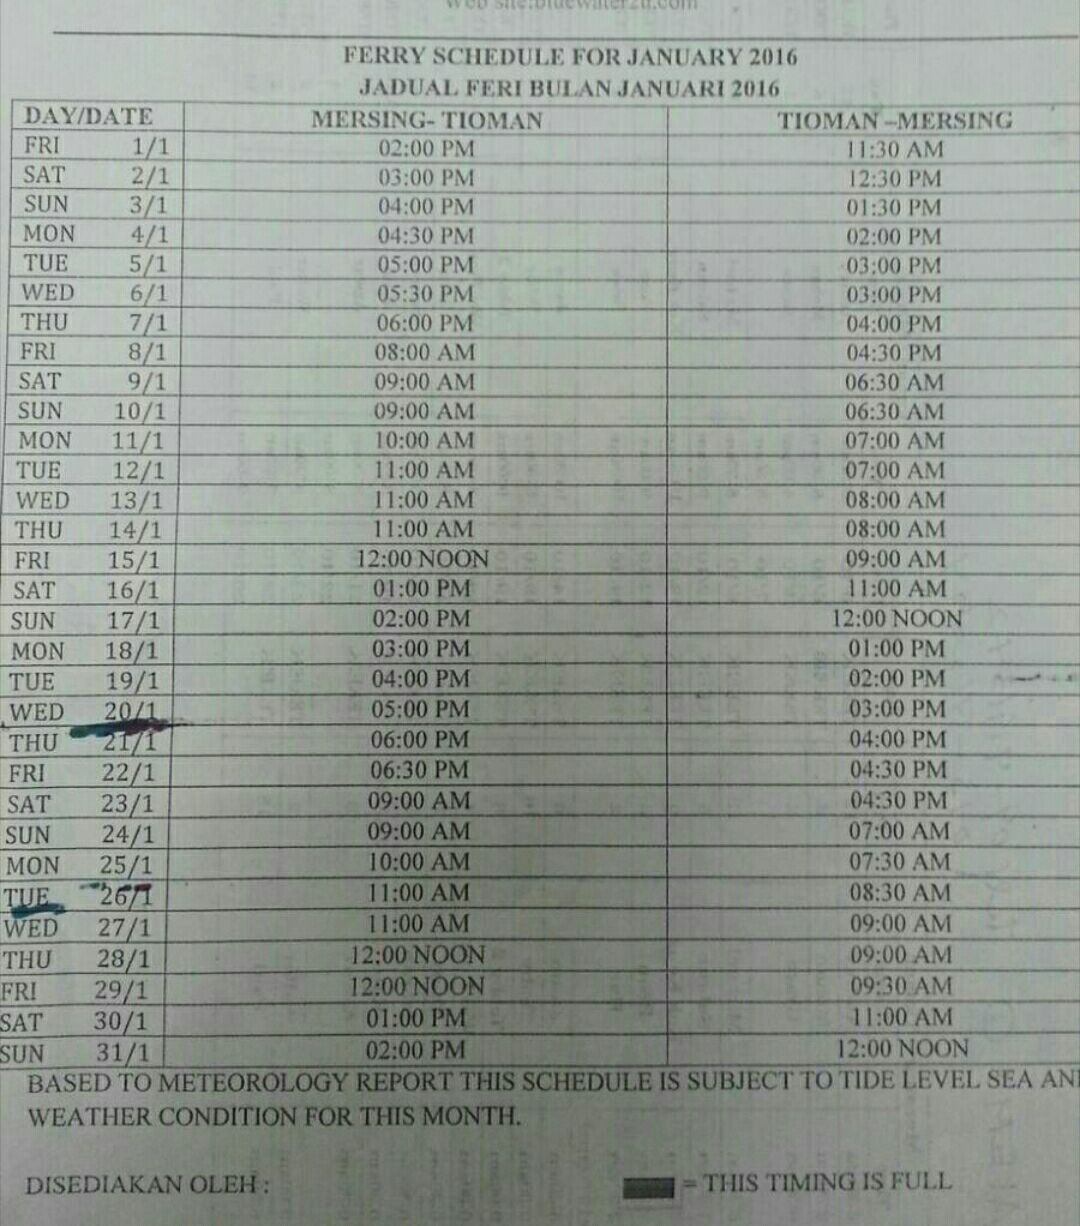 FERRY SCHEDULE FOR JANUARY 2016
JADUAL FERI BULAN JANUARI 2016
DAY/DATE MERSING- TIOMAN TIOMAN –MERSING
FRI 1/1 02:00 PM 11:30 AM
SAT 2/1 03:00 PM 12:30 PM
SUN 3/1 04:00 PM 01:30 PM
MON 4/1 04:30 PM 02:00 PM
TUE 5/1 05:00 PM 03:00 PM
WED 6/1 05:30 PM 03:00 PM
THU 7/1 06:00 PM 04:00 PM
FRI 8/1 08:00 AM 04:30 PM
SAT 9/1 09:00 AM 06:30 AM
SUN 10/1 09:00 AM 06:30 AM
MON 11/1 10:00 AM 07:00 AM
TUE 12/1 11:00 AM 07:00 AM
WED 13/1 11:00 AM 08:00 AM
THU 14/1 11:00 AM 08:00 AM
FRI 15/1 12:00 NOON 09:00 AM
SAT 16/1 01:00 PM 11:00 AM
SUN 17/1 02:00 PM 12:00 NOON
MON 18/1 03:00 PM 01:00 PM
TUE 19/1 04:00 PM 02:00 PM
WED 20/1 05:00 PM 03:00 PM
THU 21/1 06:00 PM 04:00 PM
FRI 22/1 06:30 PM 04:30 PM
SAT 23/1 09:00 AM 04:30 PM
SUN 24/1 09:00 AM 07:00 AM
MON 25/1 10:00 AM 07:30 AM
TUE 26/1 11:00 AM 08:30 AM
WED 27/1 11:00 AM 09:00 AM
THU 28/1 12:00 NOON 09:00 AM
FRI 29/1 12:00 NOON 09:30 AM
SAT 30/1 01:00 PM 11:00 AM
SUN 31/1 02:00 PM 12:00 NOON
BASED TO METEOROLOGY REPORT THIS SCHEDULE IS SUBJECT TO TIDE LEVEL SEA AN
WEATHER CONDITION FOR THIS MONTH.
DISEDIAKAN OLEH : = THIS TIMING IS FULL